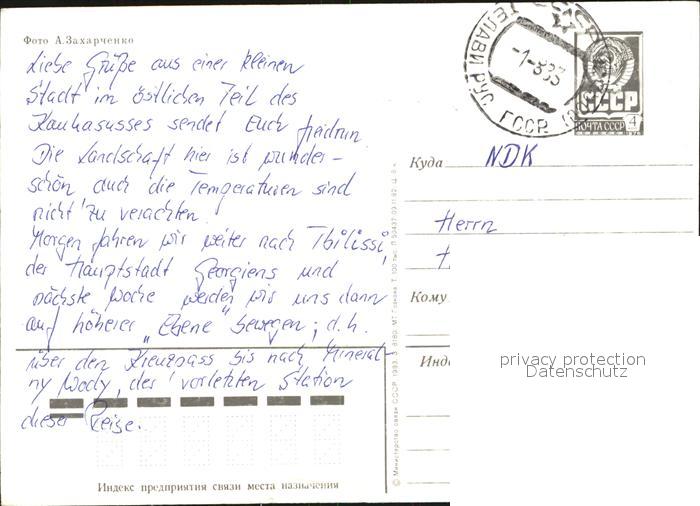 Фото А.Захарченко
Liebe Grüße aus einer kleinen
Stadt im östlichen Teil des
Kaukasusses sendet Euch Heidrun
Die Landschaft hier ist wunder-
schön auch die Temperaturen sind
nicht zu verachten.
Morgen fahren wir weiter nach Tbilissi,
der Hauptstadt Georgiens und
nächste Woche werden wir uns dann
auf höherer „Ebene" bewegen; d.h.
über den Kreuzpass bis nach Mineral-
ny Wody, der vorletzten Station
dieser Reise.
Индекс предприятия связи места назначения
© Министерство связи СССР. 1983.
ТЕЛАВИ
ГССР
СССР
ПОЧТА СССР 4
Куда NDK
Herrn
Кому
Инд
privacy protection
Datenschutz